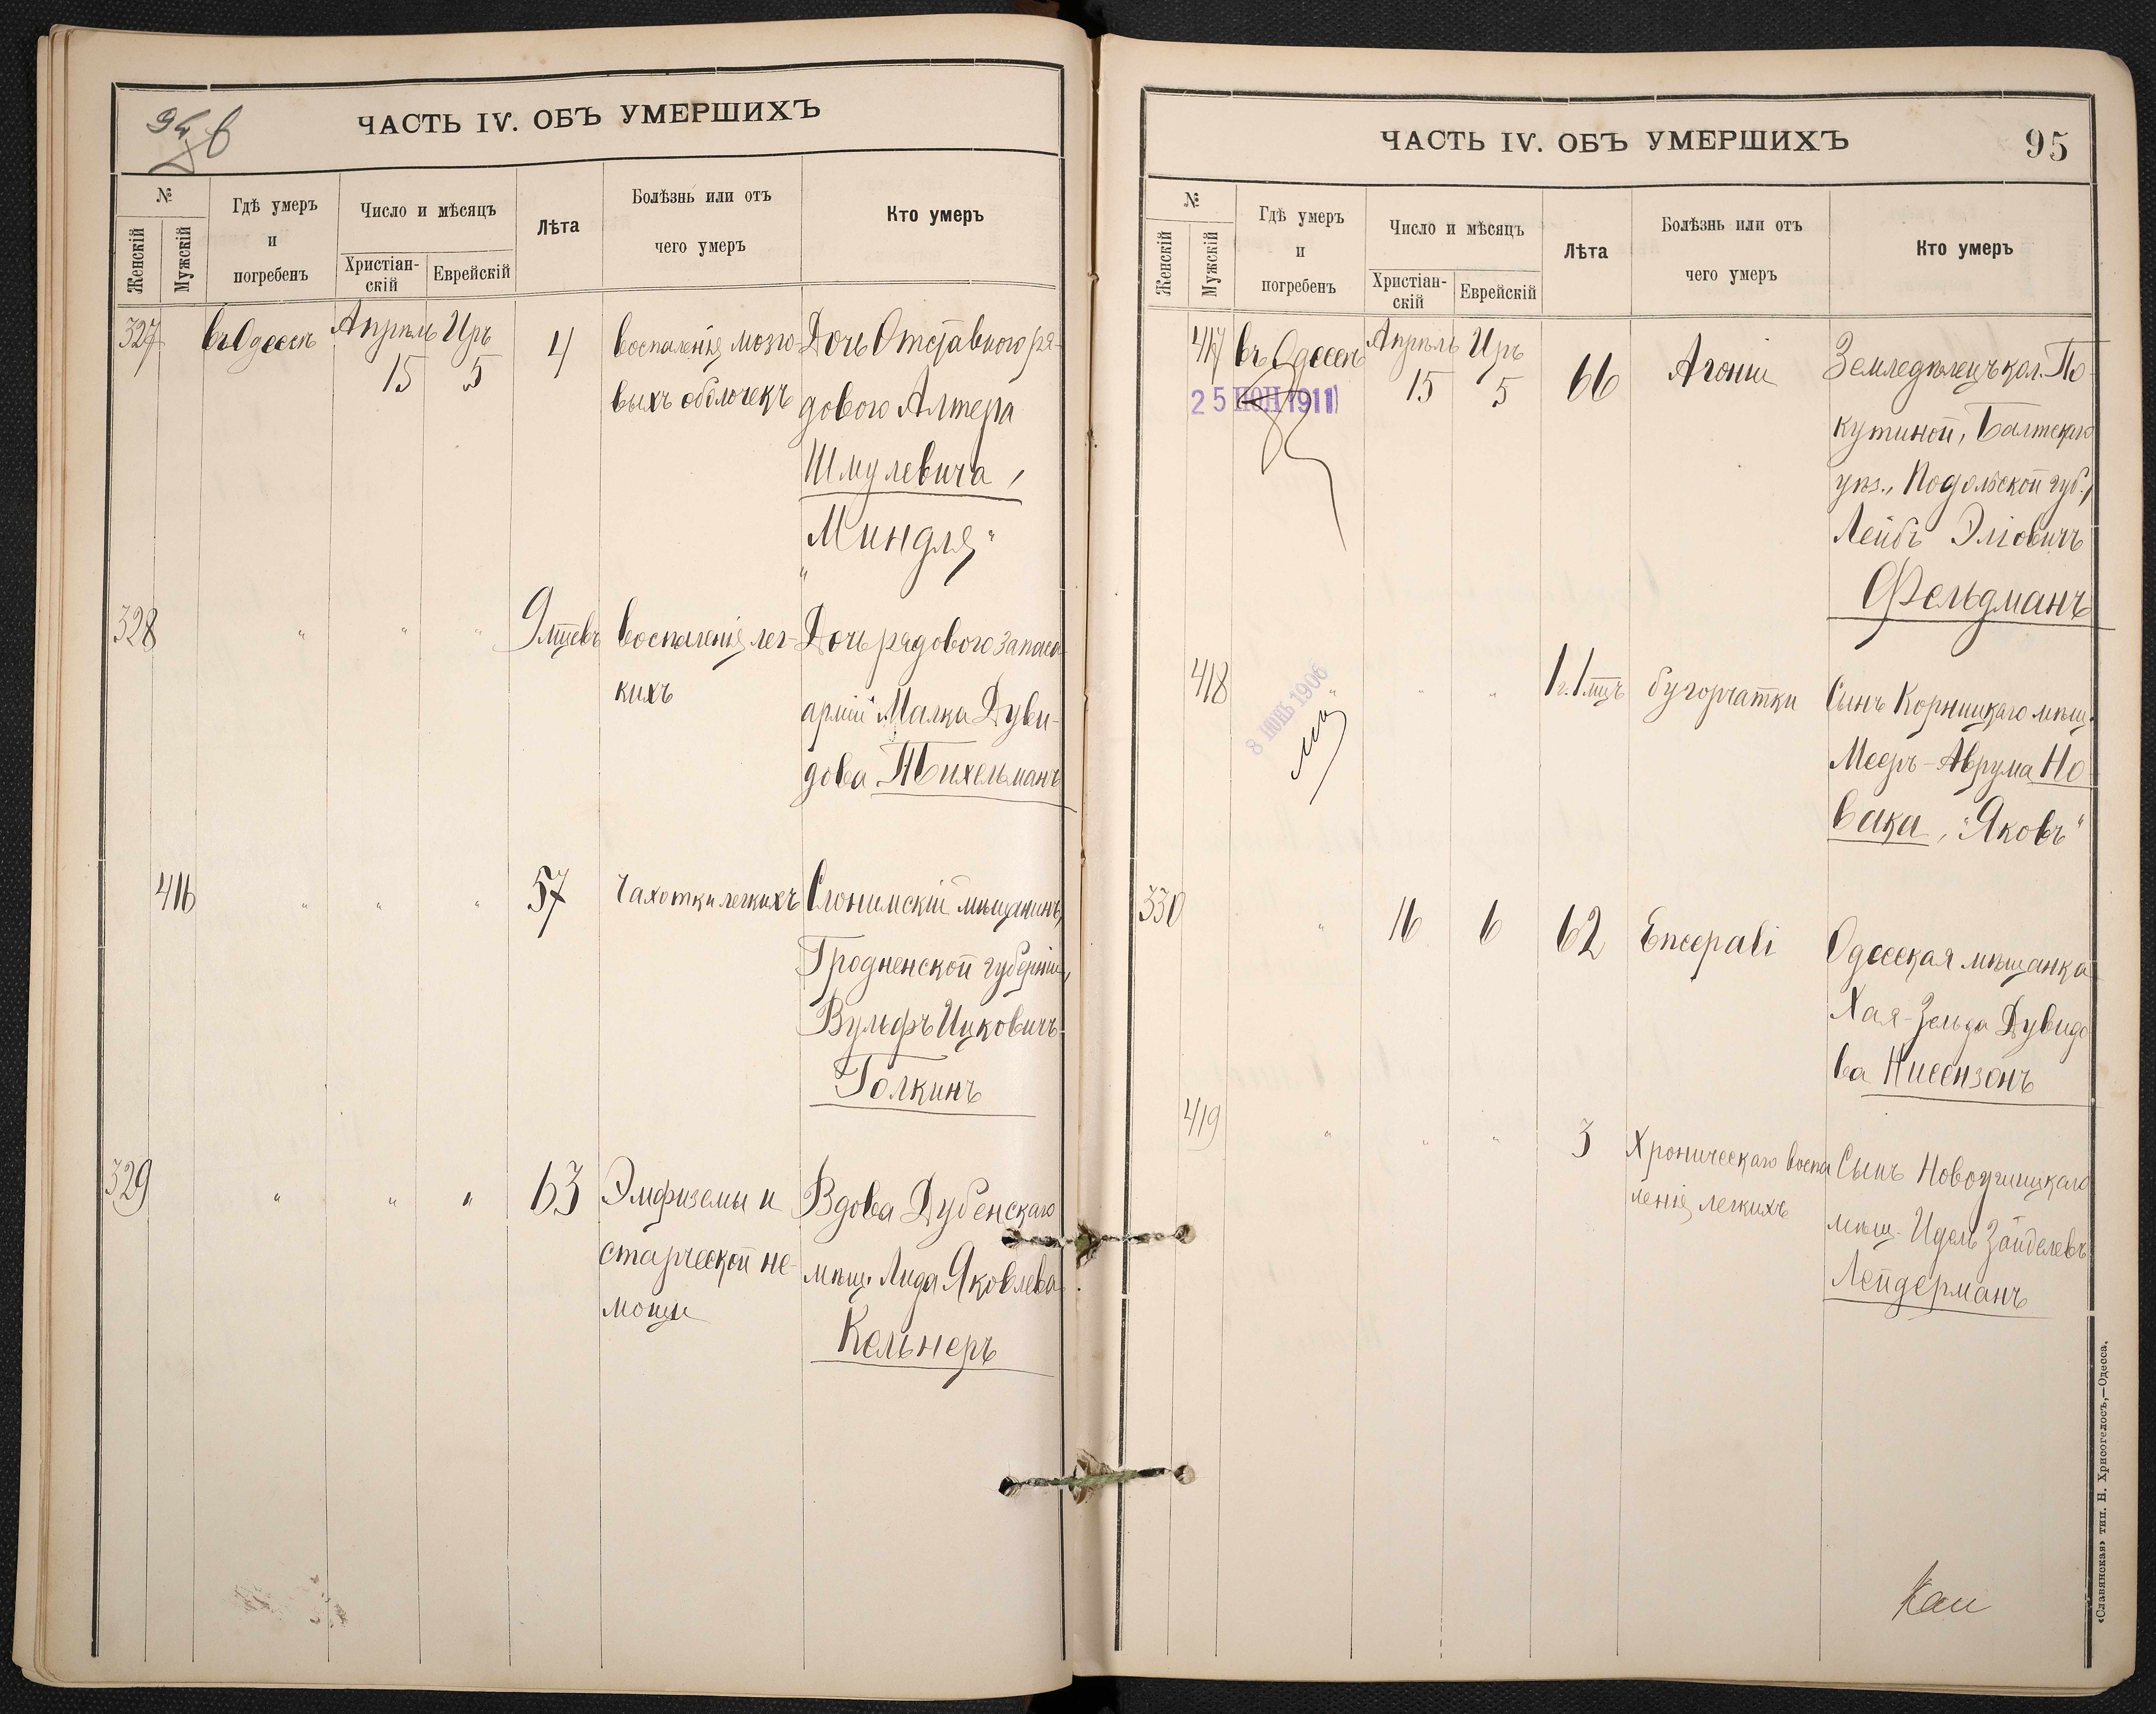 ЧАСТЬ IV. ОБЪ УМЕРШИХЪ
№
Женскій
Мужскій
Гдѣ умеръ
и
погребенъ
Число и мѣсяцъ
Христіан-
скій
Еврейскій
Лѣта
Болѣзнь или отъ
чего умеръ
Кто умеръ
327 въ Одессѣ Апрѣль Иръ 4 воспаленія мозго- Дочь Отставного ря-
15 5 выхъ оболочекъ дового Алтера
Шмулевича,
"Миндля"
328 " " " 9 мѣсцевъ воспаленія лег- Дочь рядового запаса
кихъ арміи Малка Дуви-
дова Тихельманъ
416 " " " 57 Чахотки легкихъ Слонимскій мѣщанинъ,
Гродненской губерніи,
Вульфъ Ицковичъ
Голкинъ
329 " " " 63 Эмфиземы и Вдова Дубенскаго
старческой не- мѣщ. Лида Яковлева
мощи Кельнеръ
ЧАСТЬ IV. ОБЪ УМЕРШИХЪ 95
№
Женскій
Мужскій
Гдѣ умеръ
и
погребенъ
Число и мѣсяцъ
Христіан-
скій
Еврейскій
Лѣта
Болѣзнь или отъ
чего умеръ
Кто умеръ
417 въ Одессѣ Апрѣль Иръ 66 Агоніи Земледѣлецъ кол. По-
25 ІЮН 1911 15 5 кутиной, Балтскаго
уѣз., Подольской губ.,
Лейбъ Эліовичъ
Фельдманъ
418 " " " 1 г. 1 мцъ бугорчатки Сынъ Корницкаго мѣщ.
8 ІЮНЬ 1906 Мееръ-Аврума Но-
вака, "Яковъ"
330 " 16 6 62 Encepali Одесская мѣщанка
Хая-Зельда Дувидо
ва Нисензонъ
419 " " " 3 Хроническаго воспа Сынъ Новоушицкаго
ленія легкихъ мѣщ. Идель Зайделевъ
Лейдерманъ
«Славянская» тип. Н. Хрисогелосъ,—Одесса.